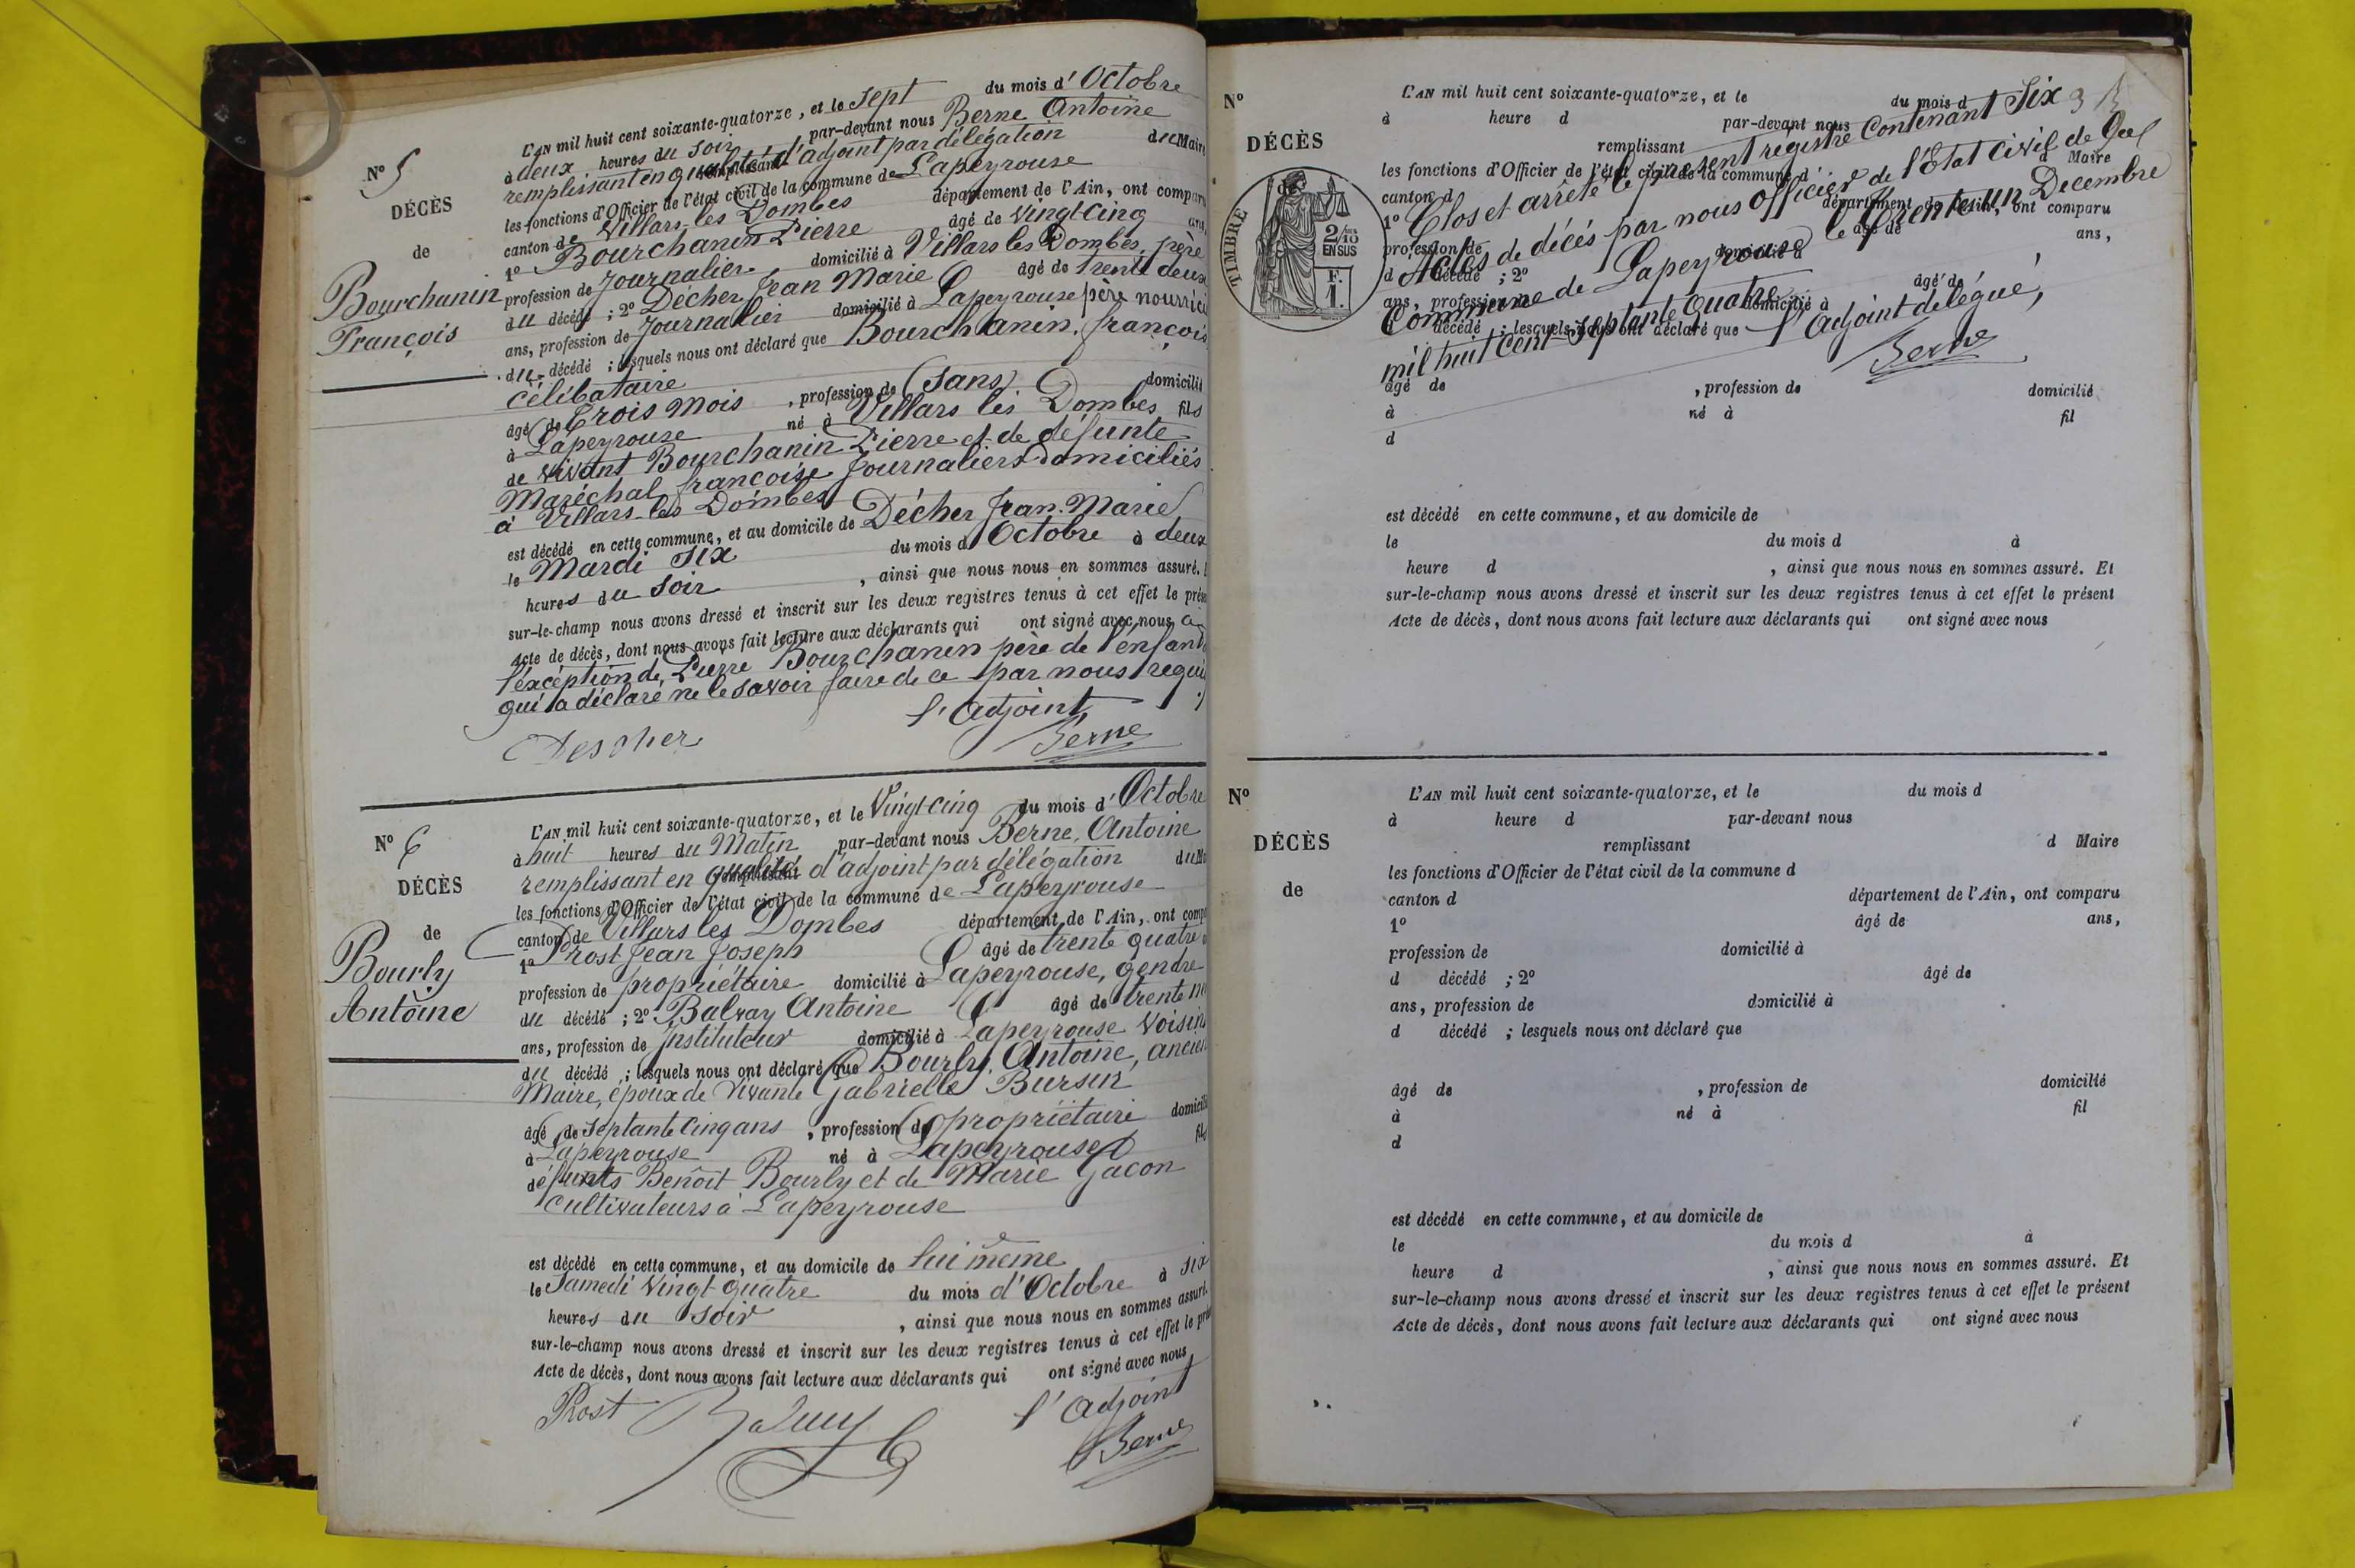 L'AN mil huit cent soixante-quatorze, et le Sept du mois d'Octobre
à deux heures du soir par-devant nous Berne Antoine
remplissant en qualité d'adjoint par délégation du Maire
N° 5
les fonctions d'Officier de l'état civil de la commune de Lapeyrouse
DÉCÈS
canton de Villars les Dombes département de l'Ain, ont comparu
de
1° Bourchanin Pierre âgé de Vingt-Cinq ans,
Bourchanin
François
profession de Journalier domicilié à Villars les Dombes, père
du décédé ; 2° Décher Jean Marie âgé de trente deux
ans, profession de Journalier domicilié à Lapeyrouse père nourricier
du décédé ; lesquels nous ont déclaré que Bourchanin, françois
célibataire
âgé de Trois mois, profession de (Sans) domicilié
à Lapeyrouse né à Villars les Dombes fils
de vivant Bourchanin Pierre et de défunte
Maréchal françoise Journaliers domiciliés
à Villars-les Dombes
est décédé en cette commune, et au domicile de Décher Jean-Marie
le Mardi Six du mois d'Octobre à deux
heures du Soir, ainsi que nous nous en sommes assuré.
sur-le-champ nous avons dressé et inscrit sur les deux registres tenus à cet effet le
Acte de décès, dont nous avons fait lecture aux déclarants qui ont signé avec nous à
l'éxception de Pierre Bourchanin père de l'enfant
qui a déclaré ne le savoir faire de ce par nous requis
l'adjoint
Descher Berne
L'AN mil huit cent soixante-quatorze, et le Vingt-Cinq du mois d'Octobre
N° 6
à huit heures du Matin par-devant nous Berne, Antoine
remplissant en qualité d'adjoint par délégation du
DÉCÈS
les fonctions d'Officier de l'état civil de la commune de Lapeyrouse
de
canton de Villars les Dombes département de l'Ain, ont
1° Prost Jean Joseph âgé de trente quatre
Bourly
Antoine
profession de propriétaire domicilié à Lapeyrouse, gendre
du décédé ; 2° Balvay Antoine âgé de trente
ans, profession de Instituteur domicilié à Lapeyrouse Voisin
du décédé ; lesquels nous ont déclaré que Bourly, Antoine, ancien
Maire, époux de Vivante Gabrielle Bursin
âgé de Septante Cinq ans, profession de propriétaire domicilié
à Lapeyrouse né à Lapeyrouse fils
défunts Benoît Bourly et de Marie Gacon
cultivateurs à Lapeyrouse
est décédé en cette commune, et au domicile de lui même
le Samedi Vingt quatre du mois d'Octobre à Six
heures du Soir, ainsi que nous nous en sommes assuré.
sur-le-champ nous avons dressé et inscrit sur les deux registres tenus à cet effet le
Acte de décès, dont nous avons fait lecture aux déclarants qui ont signé avec nous
Prost Balvay l'adjoint
Berne
N° L'AN mil huit cent soixante-quatorze, et le du mois d
à heure d par-devant nous
DÉCÈS
remplissant d Maire
les fonctions d'Officier de l'état civil de la commune d
de
canton d département de l'Ain, ont comparu
1° âgé de ans,
profession de domicilié à
d décédé ; 2° âgé de
ans, profession de domicilié à
d décédé ; lesquels nous ont déclaré que
TIMBRE
2/10
EN SUS
F.
1.
Clos et arrêté le présent registre Contenant Six
Actes de décés par nous Officier de l'état Civil de
Commune de Lapeyrouse le trente un Decembre
mil huit Cent Septante Quatre
l'adjoint délégué,
Berne
âgé de , profession de domicilié
à né à fil
d
est décédé en cette commune, et au domicile de
le du mois d à
heure d , ainsi que nous nous en sommes assuré. Et
sur-le-champ nous avons dressé et inscrit sur les deux registres tenus à cet effet le présent
Acte de décès, dont nous avons fait lecture aux déclarants qui ont signé avec nous
N° L'AN mil huit cent soixante-quatorze, et le du mois d
à heure d par-devant nous
DÉCÈS
remplissant d Maire
les fonctions d'Officier de l'état civil de la commune d
de
canton d département de l'Ain, ont comparu
1° âgé de ans,
profession de domicilié à
d décédé ; 2° âgé de
ans, profession de domicilié à
d décédé ; lesquels nous ont déclaré que
âgé de , profession de domicilié
à né à fil
d
est décédé en cette commune, et au domicile de
le du mois d à
heure d , ainsi que nous nous en sommes assuré. Et
sur-le-champ nous avons dressé et inscrit sur les deux registres tenus à cet effet le présent
Acte de décès, dont nous avons fait lecture aux déclarants qui ont signé avec nous